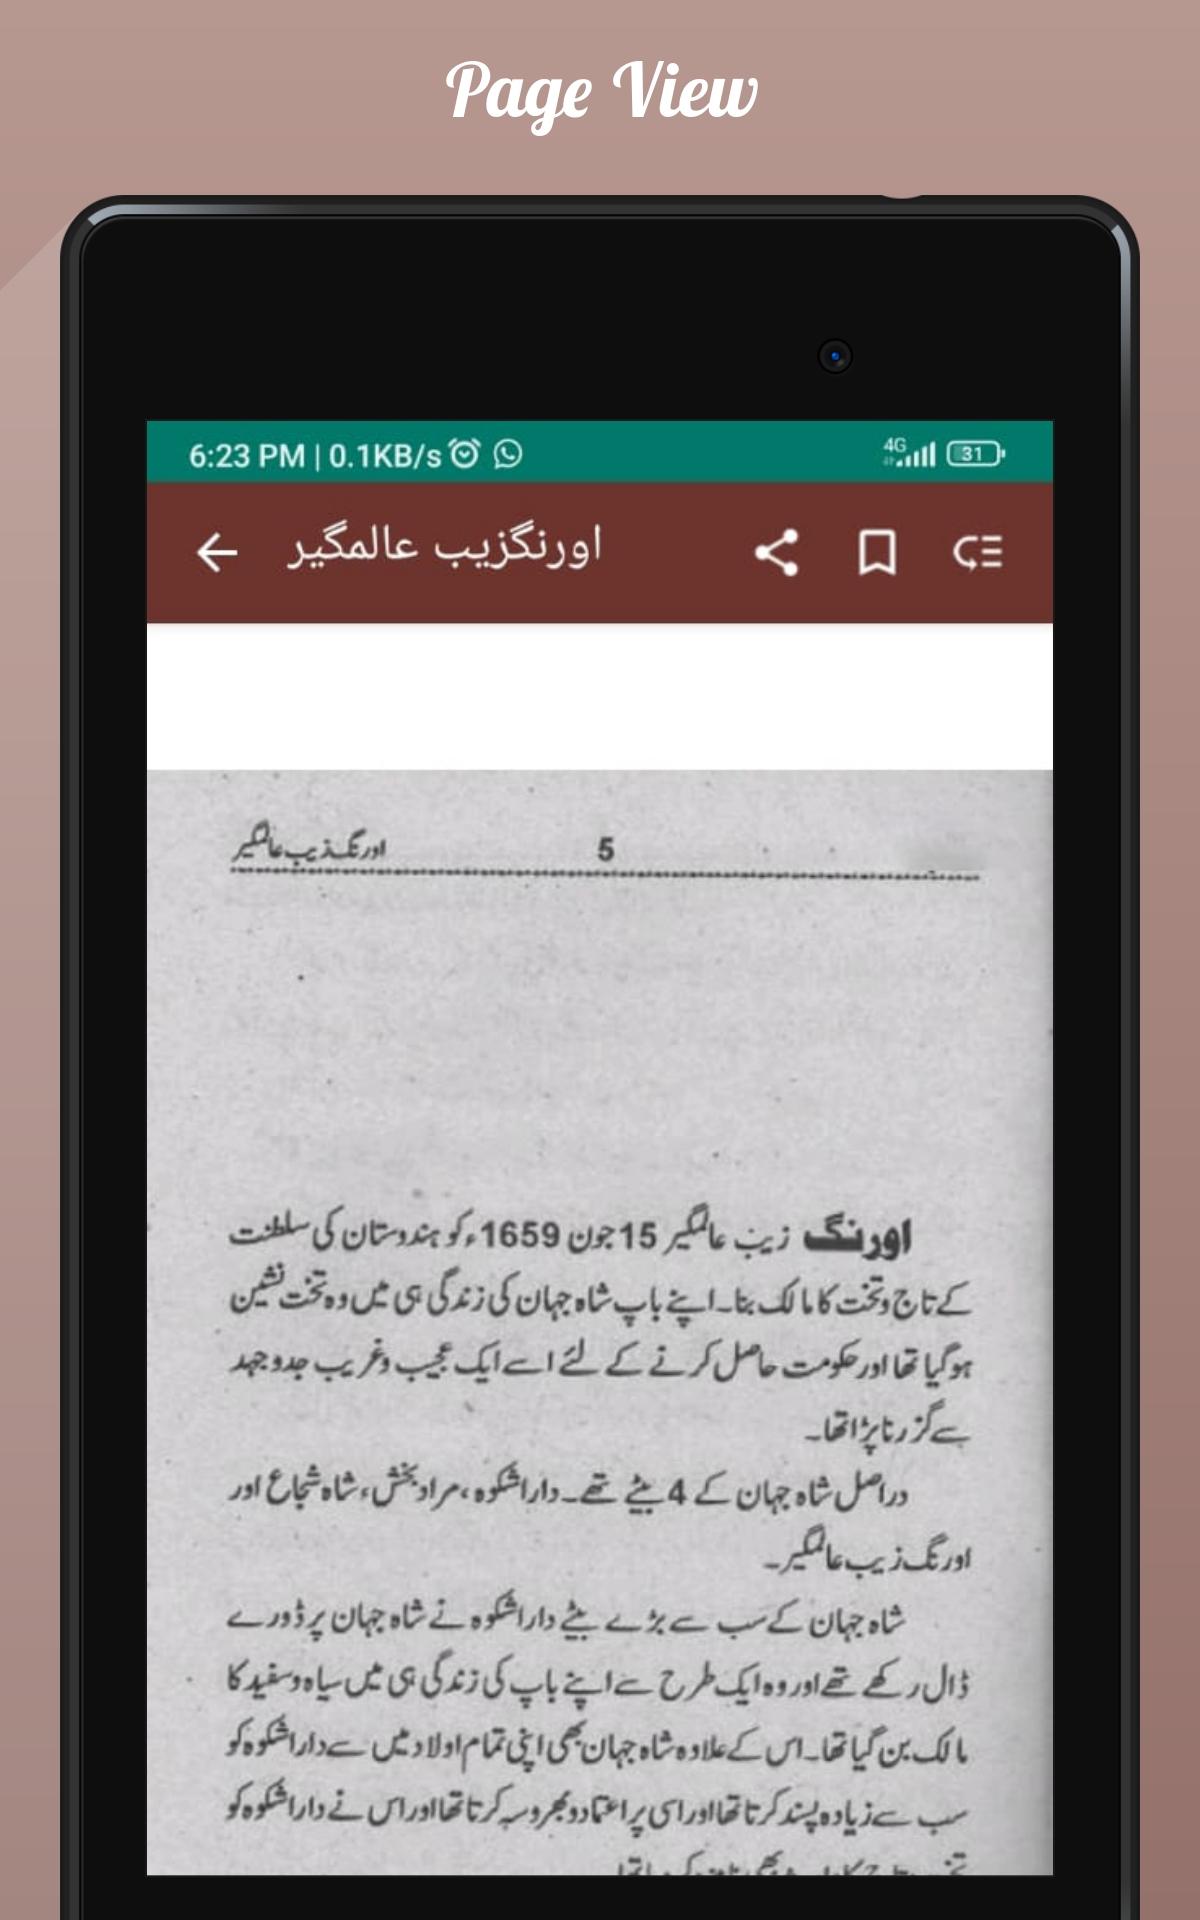 Page View
6:23 PM | 0.1KB/s
4G 31
اورنگزیب عالمگیر
اورنگ زیب عالمگیر 5
اورنگ زیب عالمگیر 15 جون 1659ء کو ہندوستان کی سلطنت
کے تاج وتخت کا مالک بنا۔ اپنے باپ شاہ جہان کی زندگی ہی میں وہ تخت نشین
ہو گیا تھا اور حکومت حاصل کرنے کے لئے اسے ایک عجیب و غریب جدوجہد
سے گزرنا پڑا تھا۔
دراصل شاہ جہان کے 4 بیٹے تھے۔ داراشکوہ، مراد بخش، شاہ شجاع اور
اورنگ زیب عالمگیر۔
شاہ جہان کے سب سے بڑے بیٹے داراشکوہ نے شاہ جہان پر ڈورے
ڈال رکھے تھے اور وہ ایک طرح سے اپنے باپ کی زندگی ہی میں سیاہ وسفید کا
مالک بن گیا تھا۔ اس کے علاوہ شاہ جہان بھی اپنی تمام اولاد میں سے داراشکوہ کو
سب سے زیادہ پسند کرتا تھا اور اسی پر اعتماد و بھروسہ کرتا تھا اور اس نے داراشکوہ کو